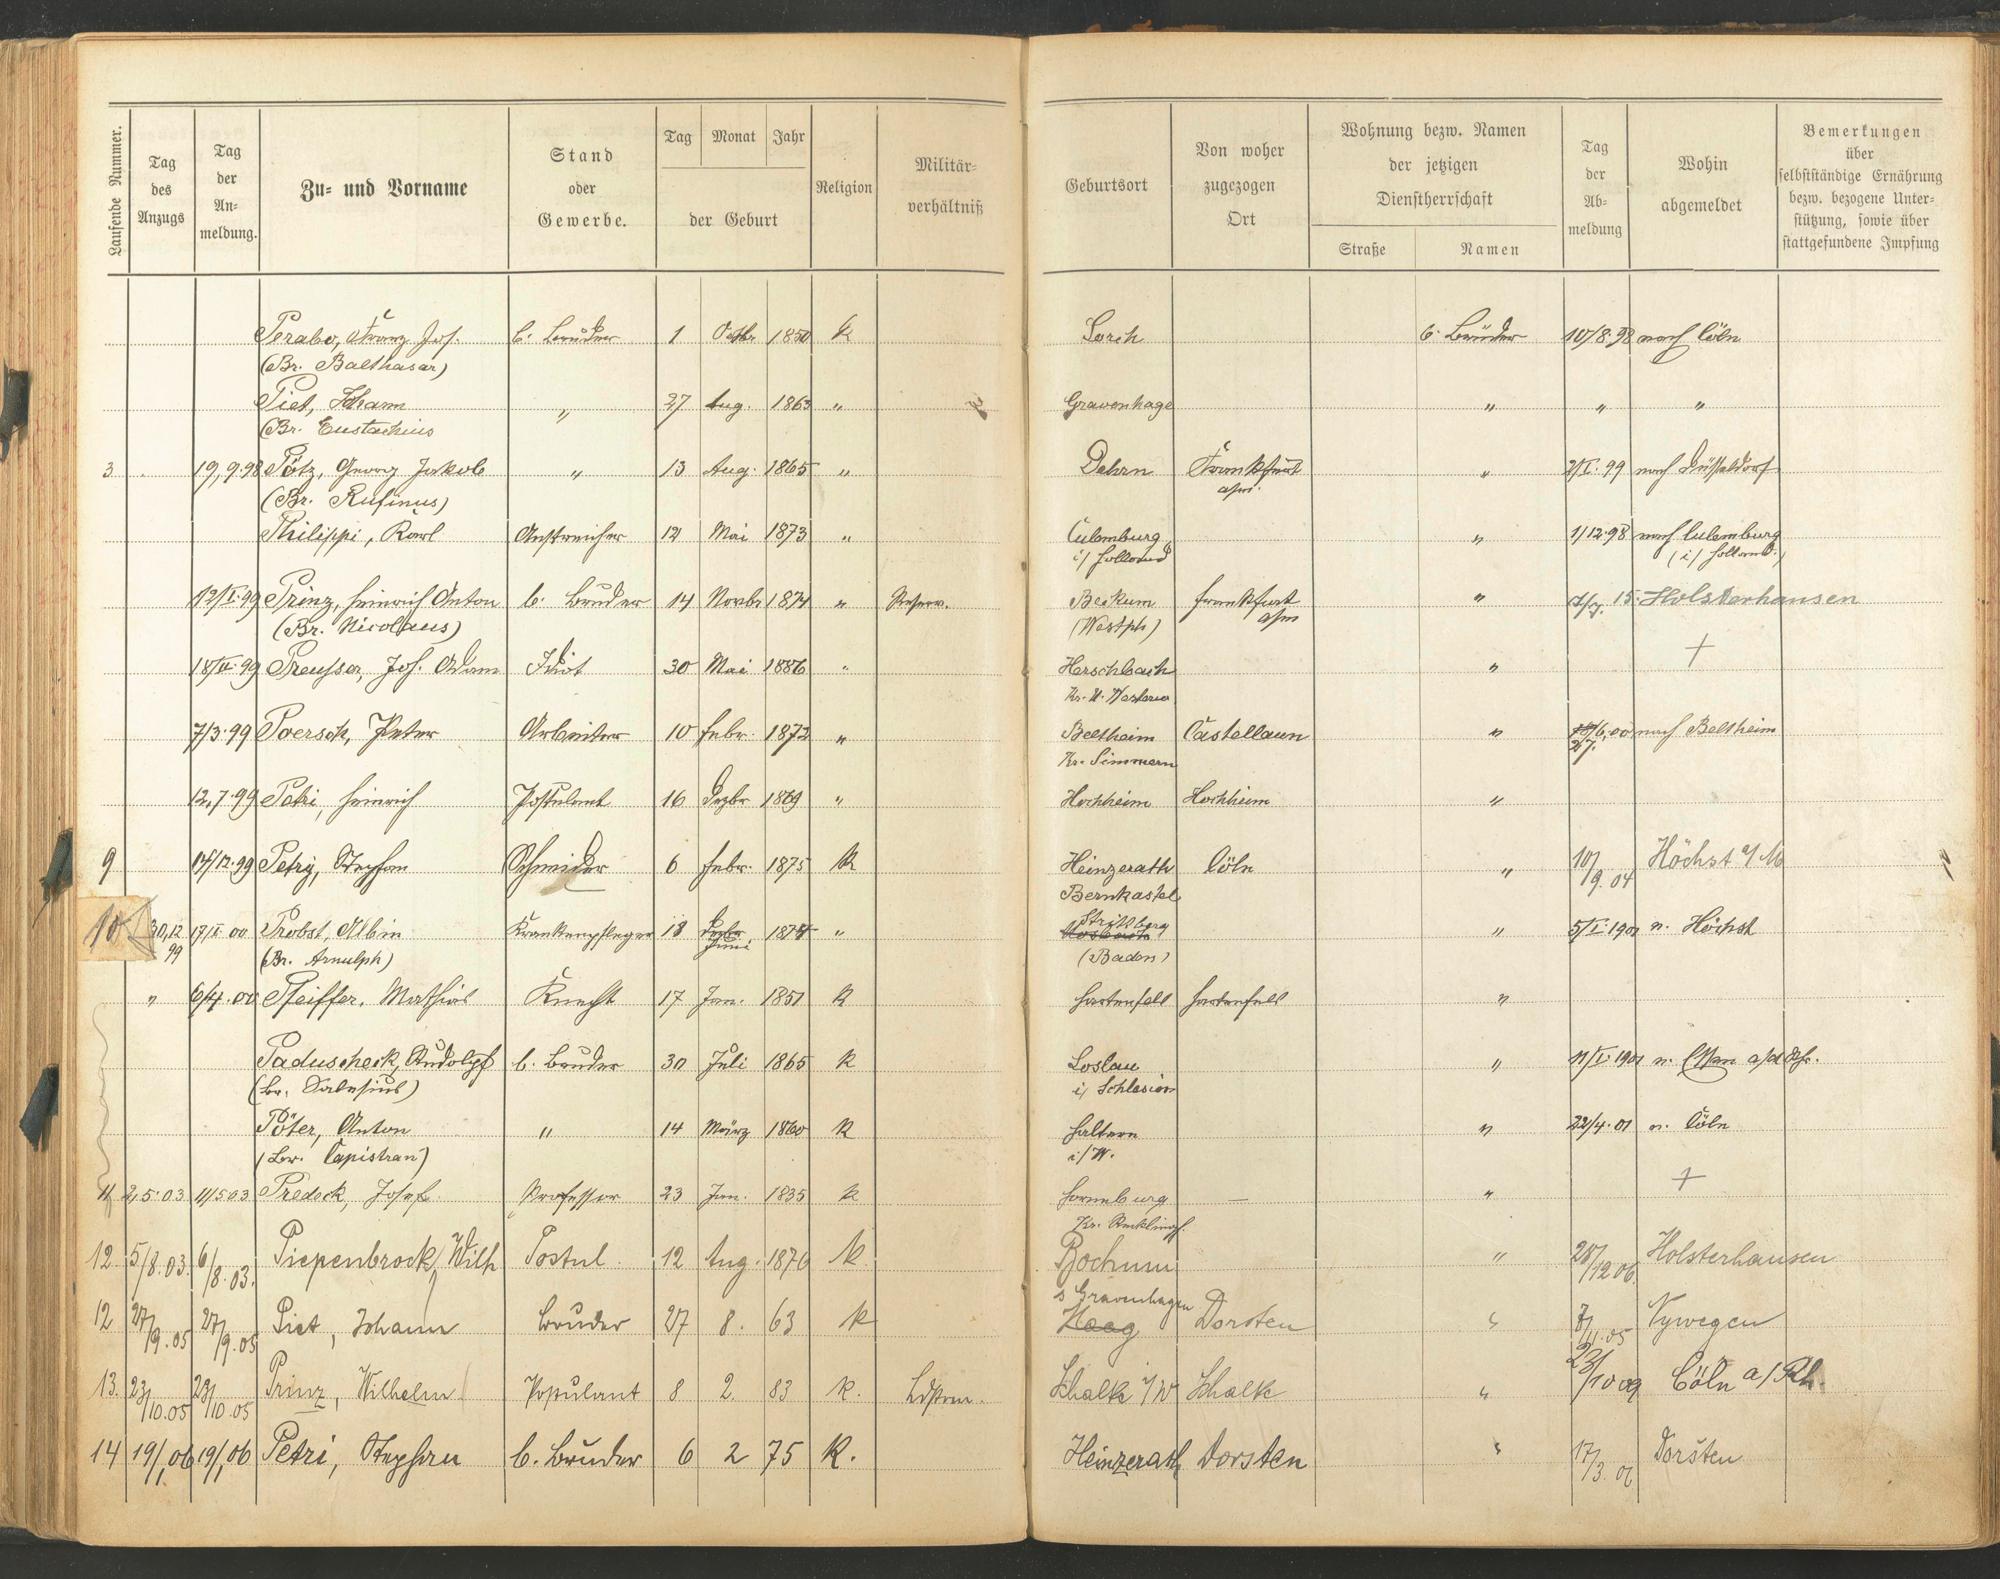 Laufende Nummer.
Tag des Anzugs
Tag der An-meldung.
Zu- und Vorname
Stand oder Gewerbe.
Tag Monat Jahr
der Geburt
Religion
Militär-verhältniß
Geburtsort
Von woher zugezogen Ort
Wohnung bezw. Namen der jetzigen Dienstherrschaft
Straße Namen
Tag der Ab-meldung
Wohin abgemeldet
Bemerkungen über selbstständige Ernährung bezw. bezogene Unter-stützung, sowie über stattgefundene Impfung
Perabo, Franz Jos. b. Bruder 1 Octbr 1850 k Lorch b. Brüder 10/8.98 nach Cöln
(Br. Balthasar)
Piet, Johann " 27 Aug. 1863 " Gravenhage " " "
(Br. Eustachius
3 19,9.98 Pötz, Georg Jakob " 13 Aug. 1865 " Dehrn Frankfurt " 2/I.99 nach Düsseldorf
(Br. Rufinus) a/m.
Philippi, Karl Anstreicher 12 Mai 1873 " Culemburg " 1/12.98 nach Culemburg
i/ Holland (i/ Holland.)
12/I.99 Prinz, Heinrich Anton b. Bruder 14 Novbr 1874 " Reserv. Beckum Frankfurt " 7/7. 15. Holsterhausen
(Br. Nicolaus) (Westph) a/m
18/II.99 Preusser, Jos. Adam Idiot 30 Mai 1886 " Herschbach " +
Kr. U. Westerw
7/3.99 Poersch, Peter Arbeiter 10 Febr. 1872 " Beltheim Castellaun " /6.00 nach Beltheim
Kr. Simmern 2/7.
12.7.99 Petri, Heinrich Postulant 16 Dezbr 1869 " Hochheim Hochheim "
9 14/12.99 Petry, Stephan Schneider 6 Febr. 1875 k Heinzerath Cöln " 10/9.04 Höchst a/M
Bernkastel
10 30,12 99 17/I 00 Probst, Albin Krankenpfleger 18 Dezbr Juni 1878 " Strittberg " 5/I.1901 n. Höchst
(Br. Arnulph) (Baden)
" 6/4.00 Pfeiffer, Mathias Knecht 17 Jan. 1851 k Hartenfels Hartenfels "
Paduscheck, Rudolph b. Bruder 30 Juli 1865 k Loslau " 11/I.1901 n. Essen a/d Rhr.
(Br. Salesius) i/ Schlesien
Pöter, Anton " 14 März 1860 k Haltern " 22/4.01 n. Cöln
(Br. Capistran) i/W.
11 2,5.03 11/5 03 Predeck, Josef Professor 23 Jan. 1835 k Horneburg — " +
Kr. Recklingh.
12 5/8.03. 6/8.03. Piepenbrock, Wilh Postul. 12 Aug. 1876 k. Bochum " 28/12 06 Holsterhausen
12 27/9.05 27/9.05 Piet, Johann Bruder 27 8. 63 k s Gravenhagen Haag Dorsten " 7/11.05 Nymegen
13. 23/10.05 23/10.05 Prinz, Wilhelm Postulant 8 2. 83 k. Ldstrm. Schalke i/W Schalke " 23/10 09 Cöln a/Rh.
14 19/1,06 19/1,06 Petri, Stephan b. Bruder 6 2 75 k. Heinzerath Dorsten " 17/3.06 Dorsten